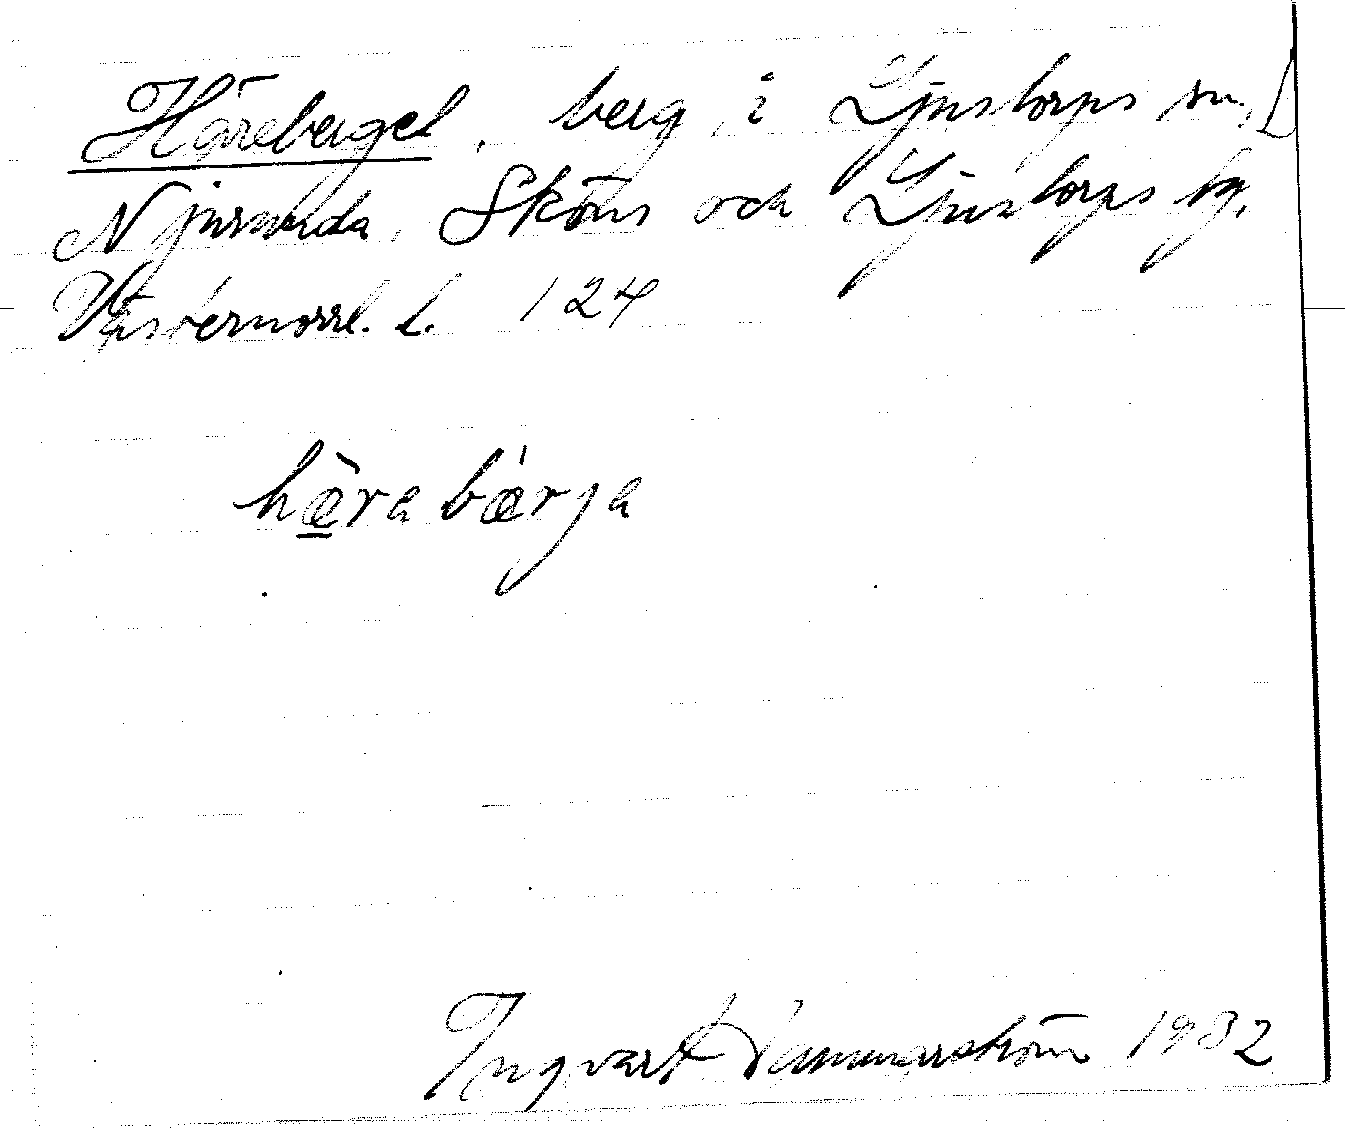 Häreberget, berg i Ljustorps sn.
Njurunda, Sköns och Ljustorps tg.
Västernorrl. l. 124
hæ̀ra bǽrja
Ingvar Hammarström 1932